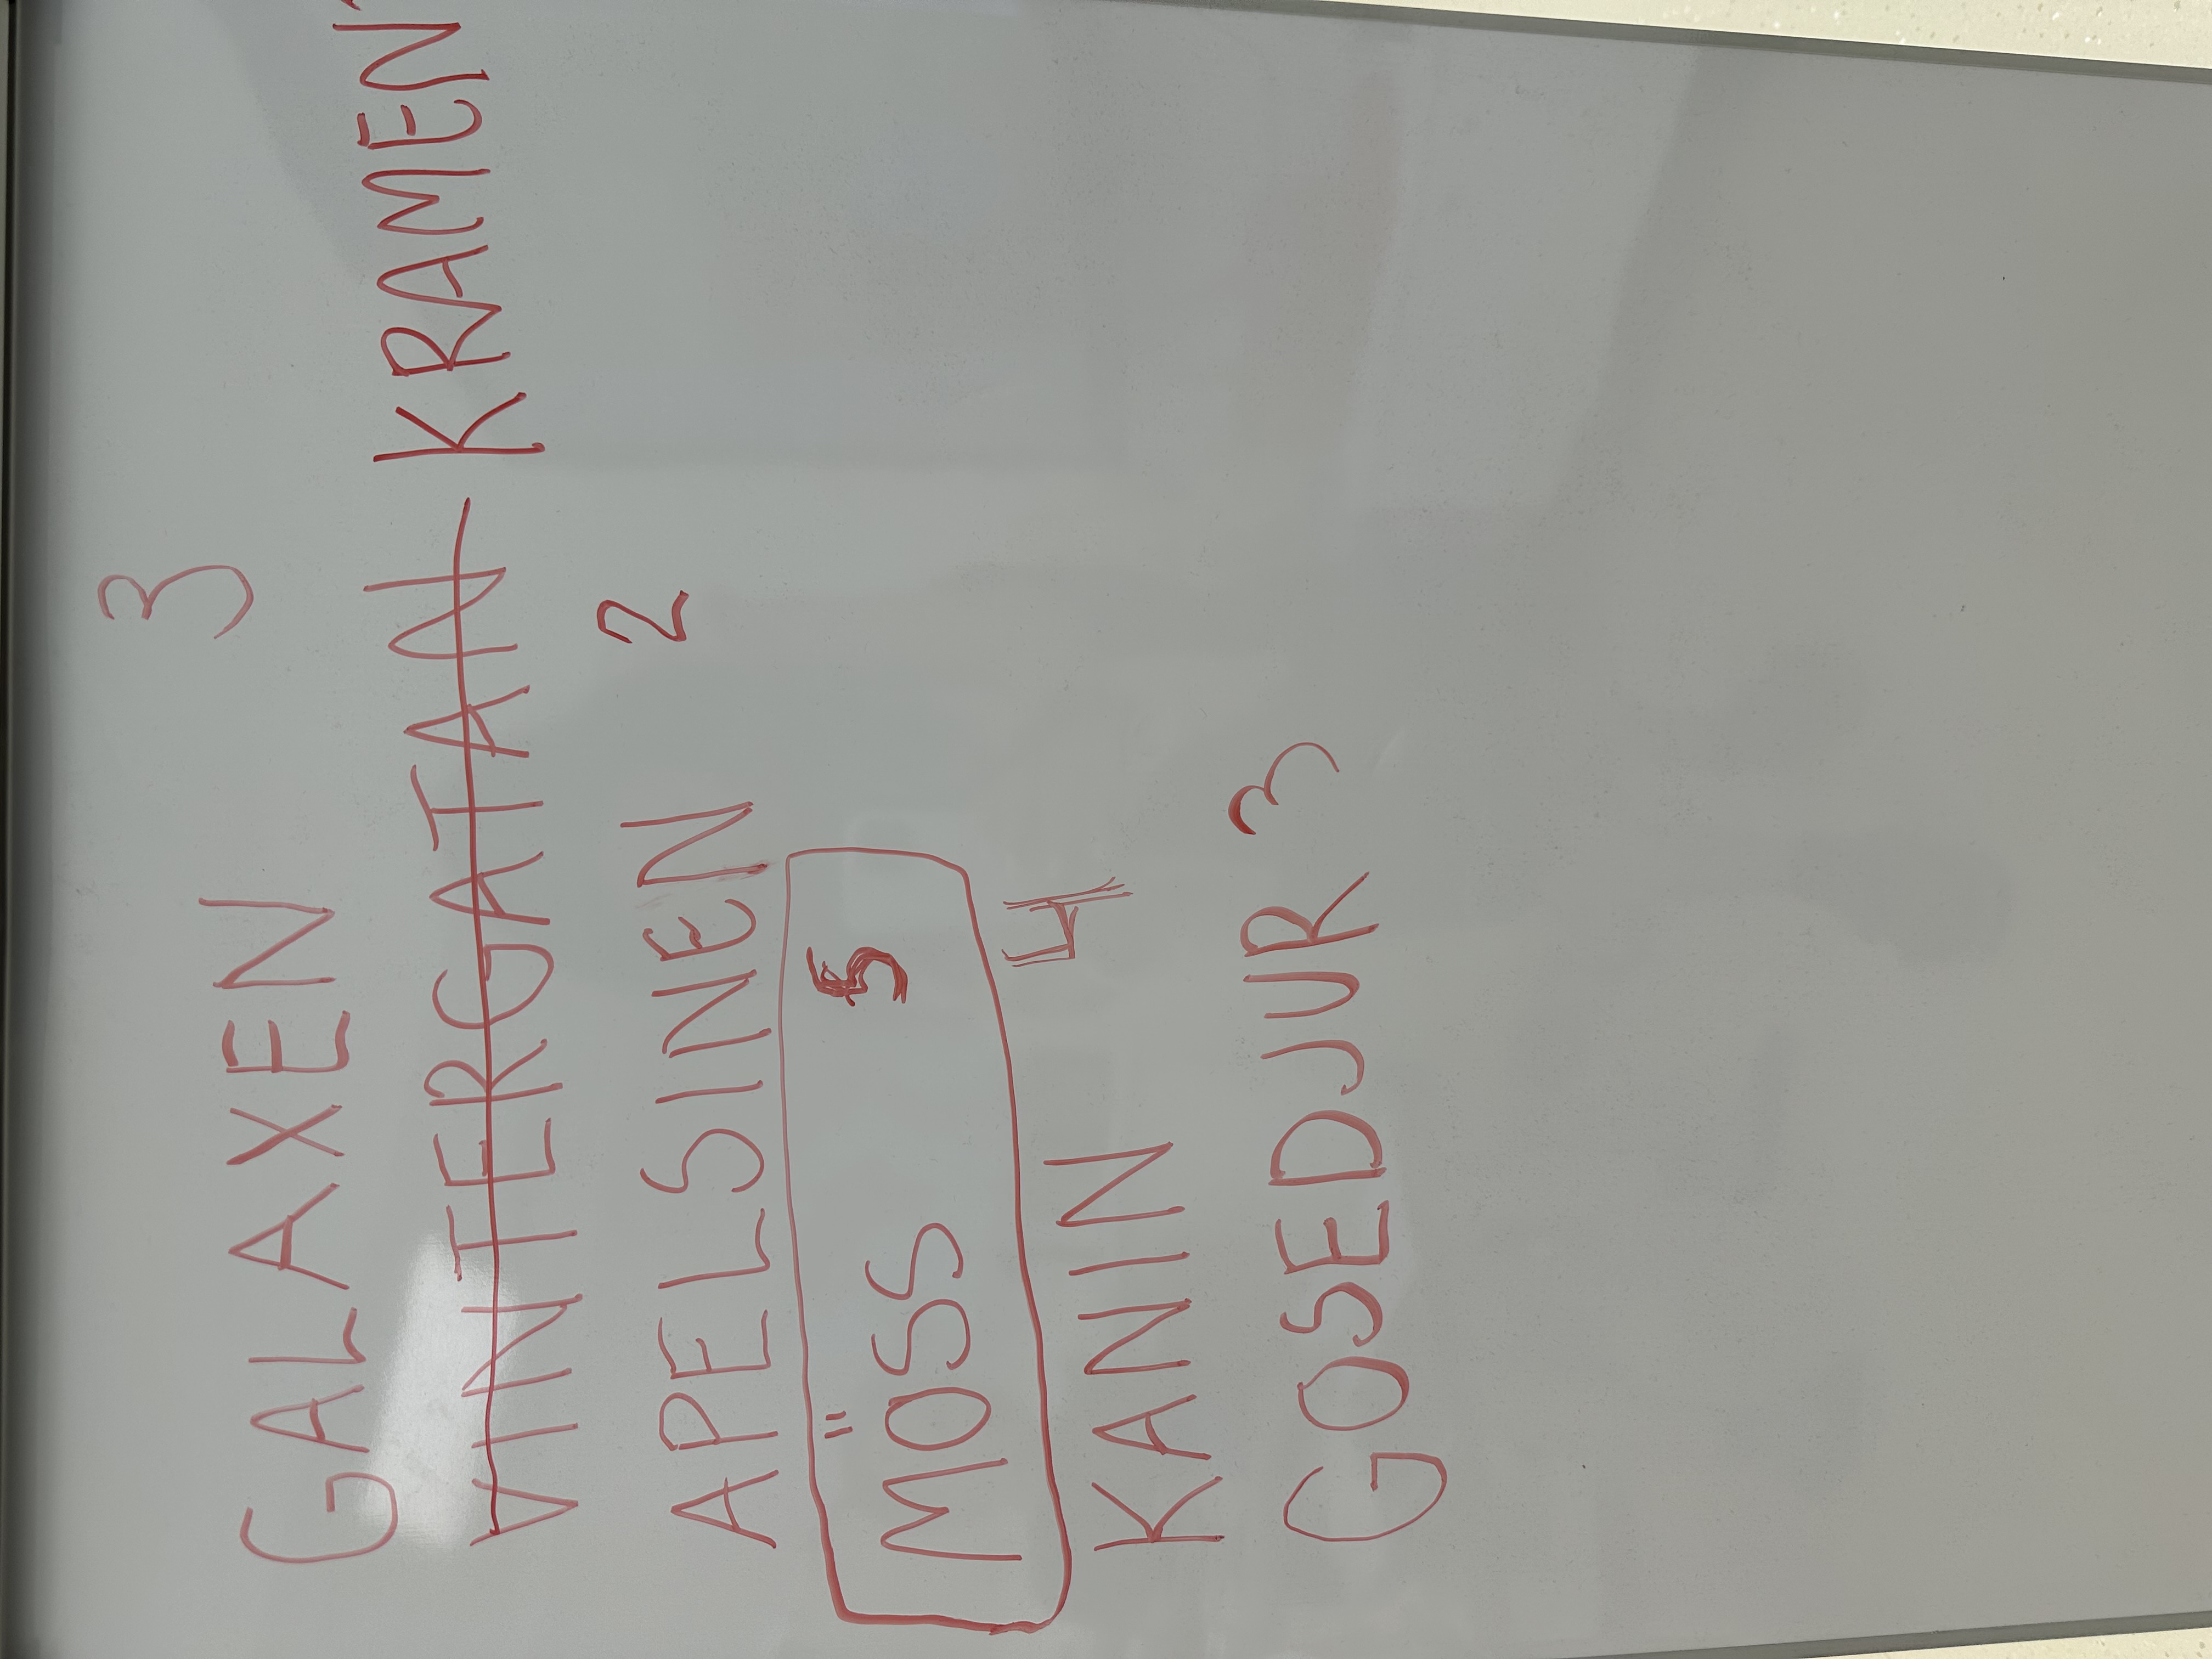 GALAXEN 3
VINTERGATAN KRAMEN
APELSINEN 2
MÖSS 5
KANIN 4
GOSEDJUR 3